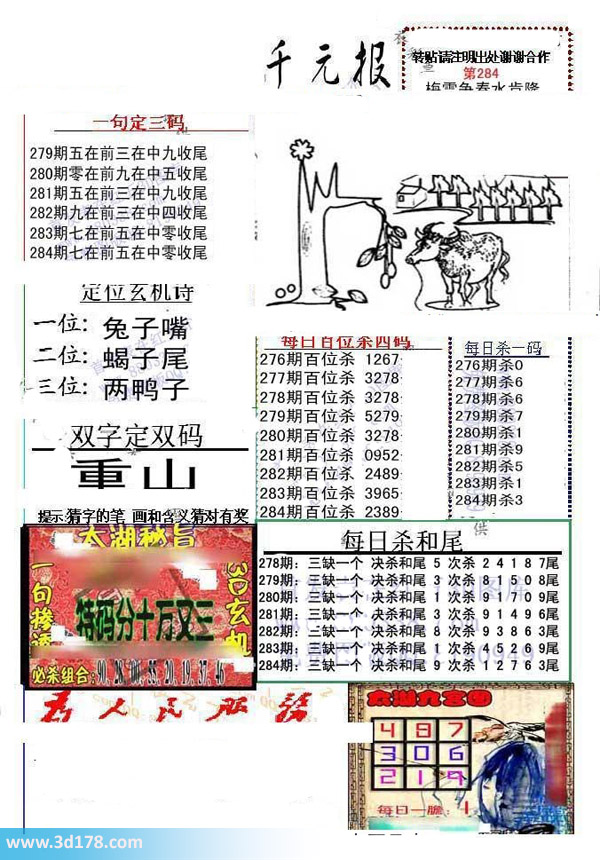 千元报
转贴请注明出处谢谢合作
第284
梅雪争春水肯降
一句定三码
279期五在前三在中九收尾
280期零在前九在中五收尾
281期五在前三在中九收尾
282期九在前三在中四收尾
283期七在前五在中零收尾
284期七在前五在中零收尾
定位玄机诗
一位: 兔子嘴
二位: 蝎子尾
三位: 两鸭子
双字定双码
重山
提示:猜字的笔 画和含义猜对有奖
每日百位杀四码
276期百位杀 1267
277期百位杀 3278
278期百位杀 3278
279期百位杀 5279
280期百位杀 3278
281期百位杀 0952
282期百位杀 2489
283期百位杀 3965
284期百位杀 2389
每日杀一码
276期杀0
277期杀6
278期杀6
279期杀7
280期杀1
281期杀9
282期杀5
283期杀1
284期杀3
供
太湖秘旨
一句掺透
3D玄机
特码分十万又三
必杀组合: 90. 28. 00. 55. 20. 19. 37. 46
每日杀和尾
278期: 三缺一个 决杀和尾 5 次杀 2 4 1 8 7尾
279期: 三缺一个 决杀和尾 3 次杀 8 1 5 0 8尾
280期: 三缺一个 决杀和尾 1 次杀 9 1 7 0 9尾
281期: 三缺一个 决杀和尾 3 次杀 9 1 4 9 6尾
282期: 三缺一个 决杀和尾 8 次杀 9 3 8 6 3尾
283期: 三缺一个 决杀和尾 1 次杀 4 5 2 6 9尾
284期: 三缺一个 决杀和尾 9 次杀 1 2 7 6 3尾
为人民服务
太湖九宫图
4 8 7
3 0 6
2 1 9
每日一胆: 1
www.3d178.com